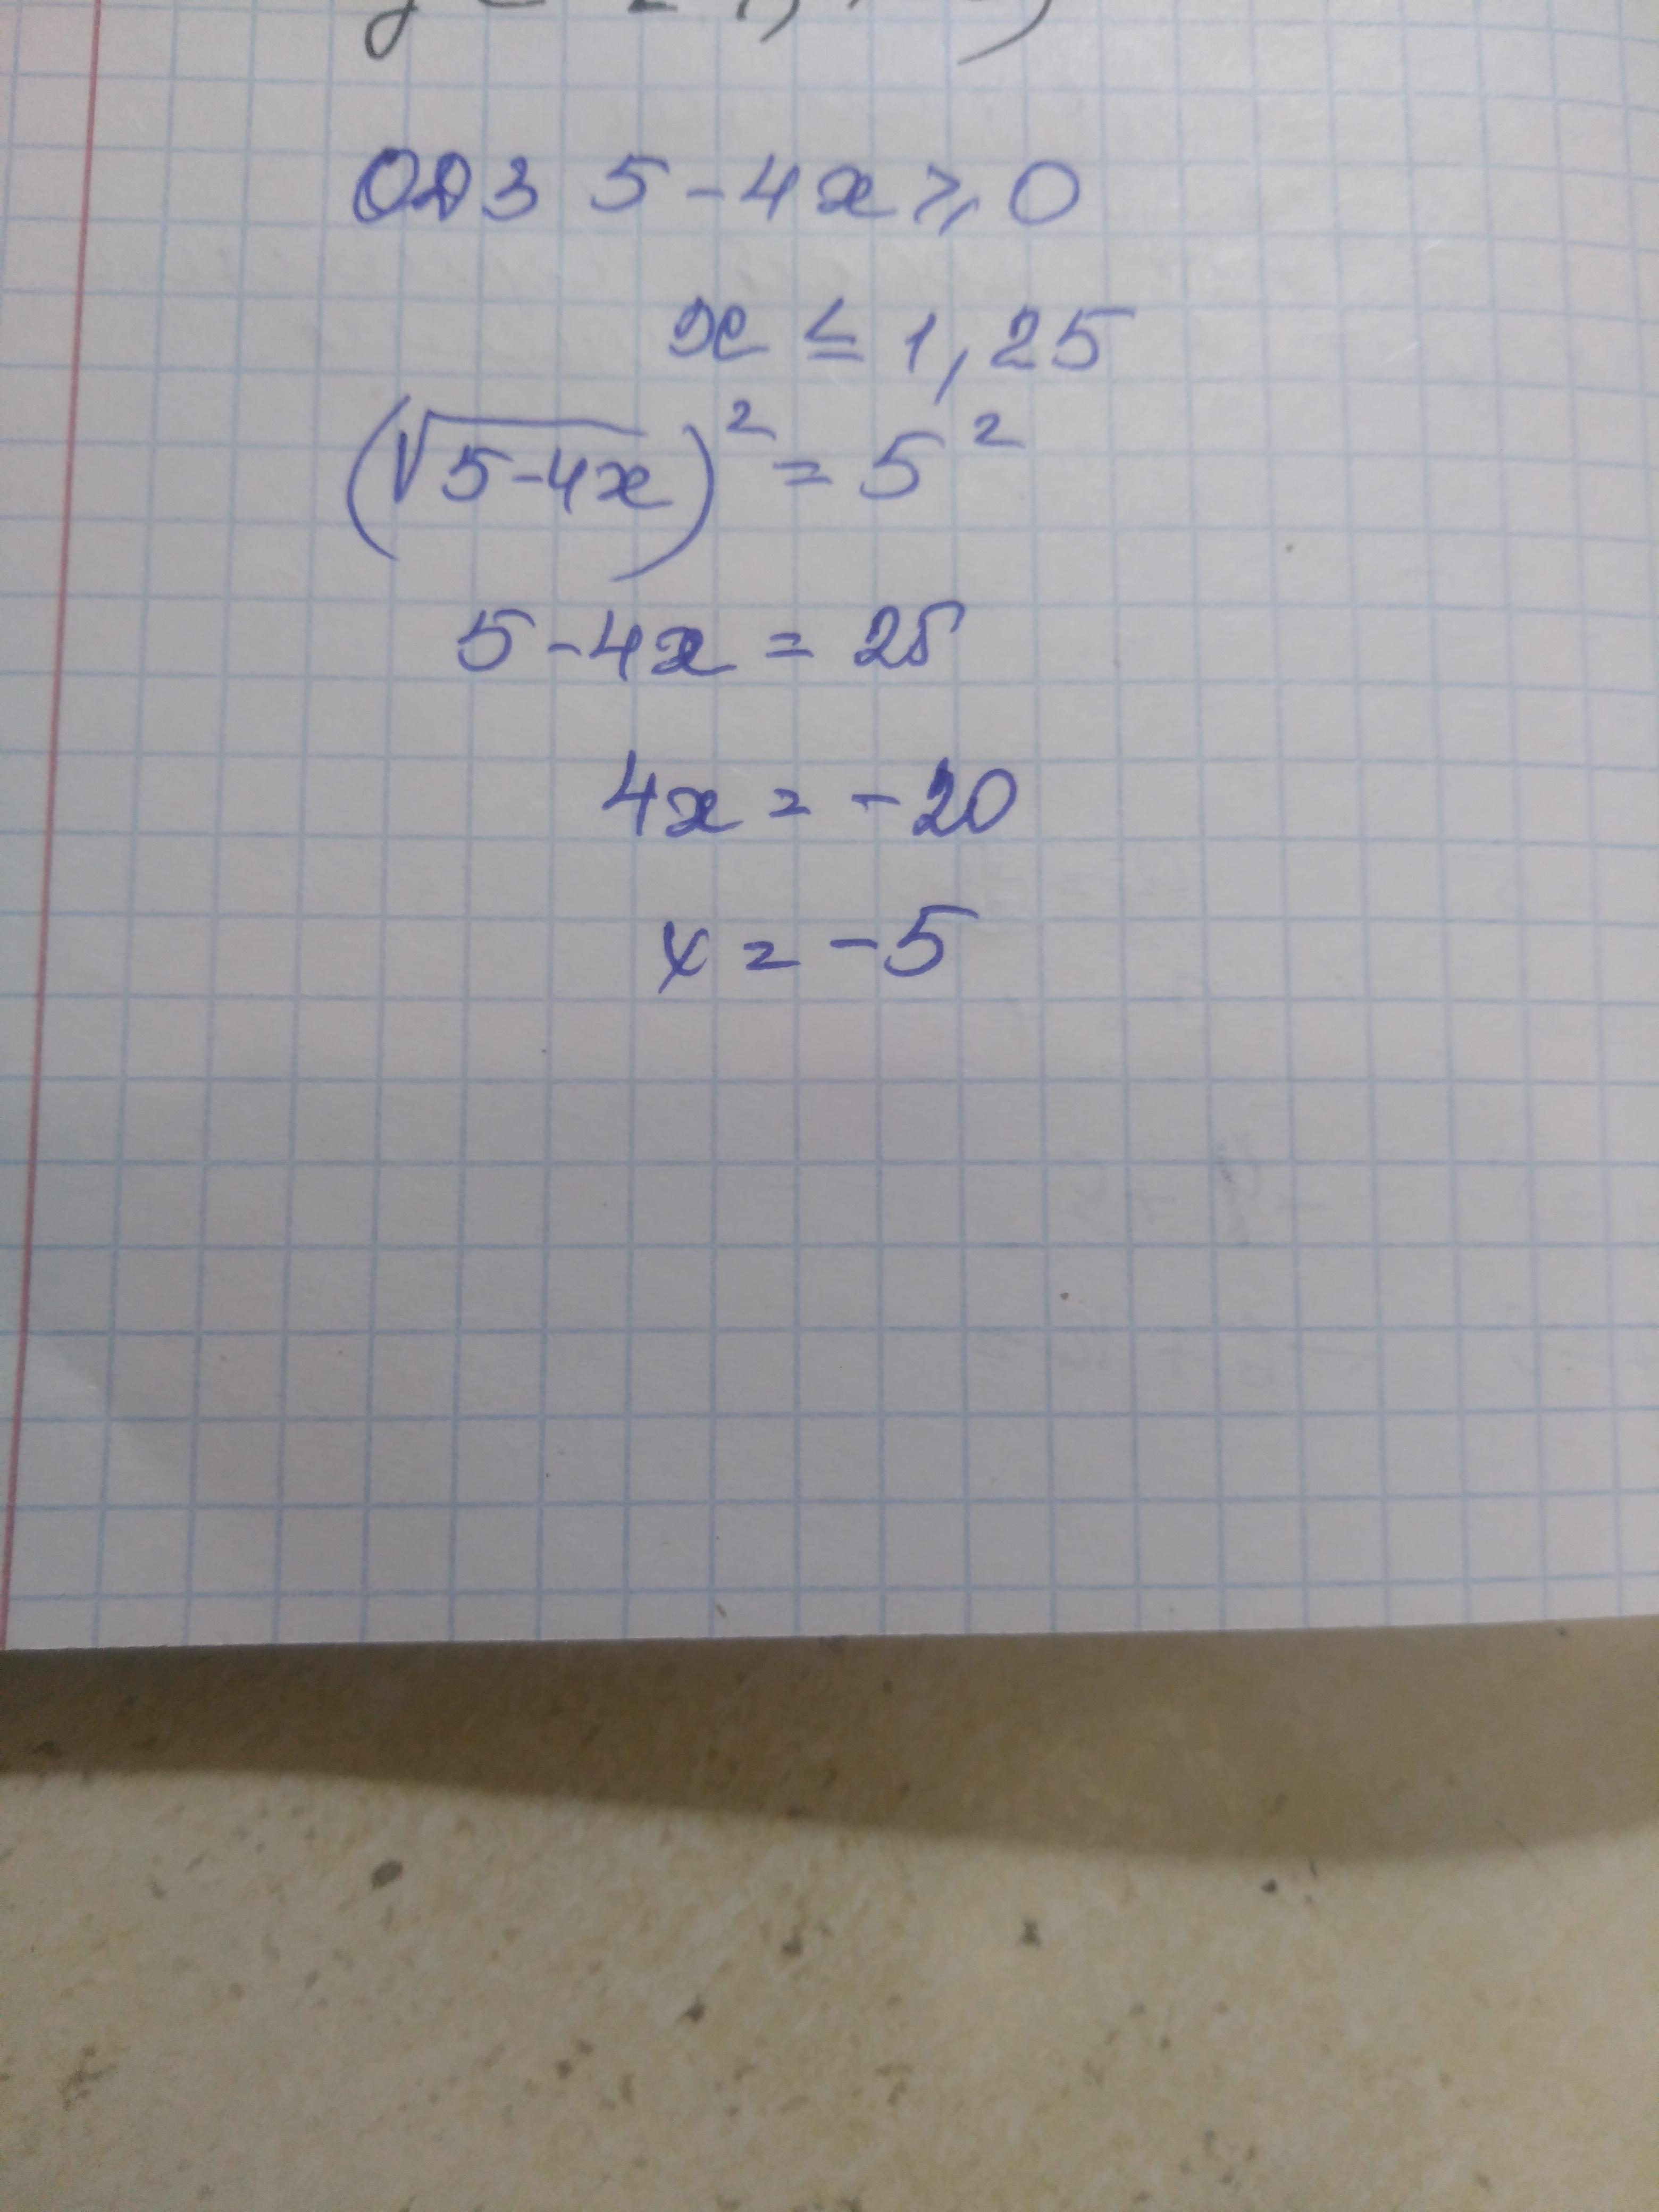 ОДЗ 5-4x≥0
x≤1,25
(√5-4x)²=5²
5-4x=25
4x=-20
x=-5